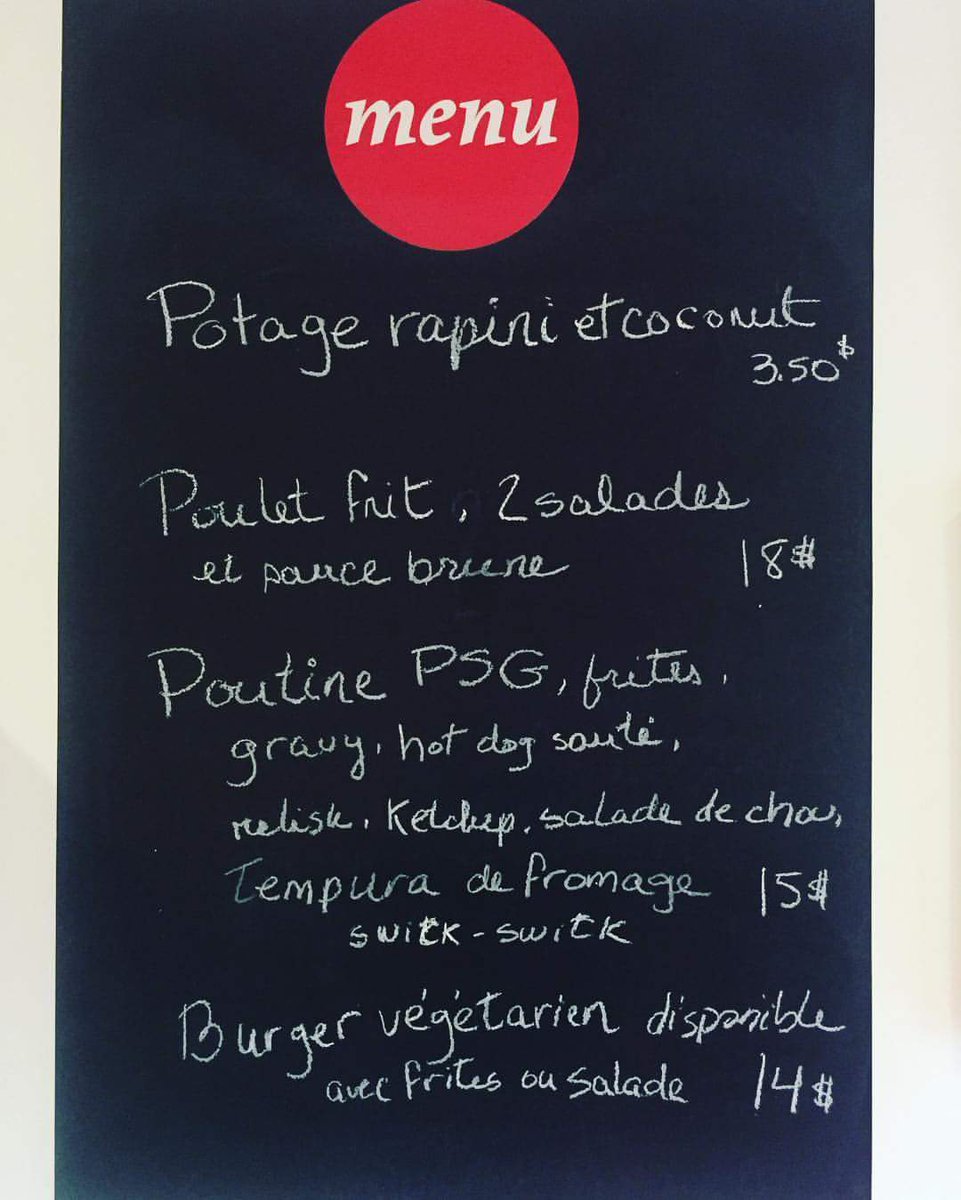 menu
Potage rapini et coconut
3.50$
Poulet frit, 2 salades
et sauce brune 18$
Poutine PSG, frites,
gravy, hot dog sauté,
relish, Ketchup, salade de chou,
Tempura de fromage 15$
swick-swick
Burger végétarien disponible
avec frites ou salade 14$